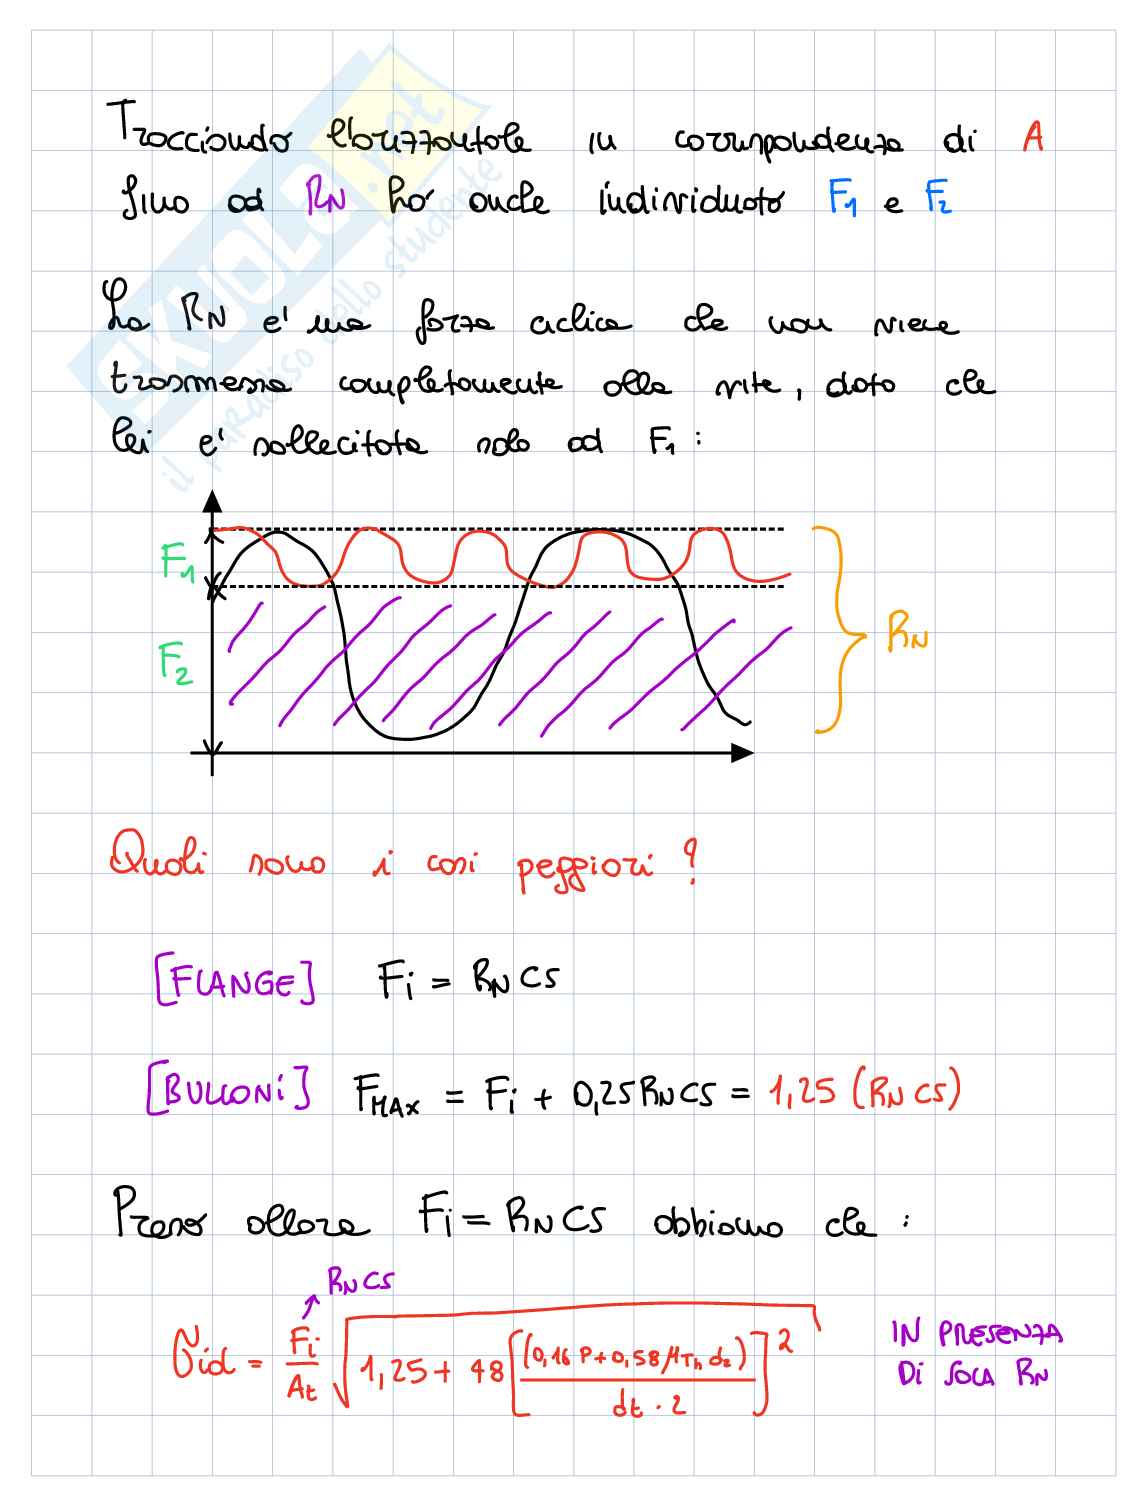 Tracciando l'orizzontale in corrispondenza di A
fino ad RN ho' anche individuato F1 e F2
La RN e' una forza ciclica che non viene
trasmessa completamente alla vite, dato che
lei e' sollecitata solo ad F1 :
F1
F2
RN
Quali sono i casi peggiori ?
[FLANGE] Fi = RN CS
[BULLONI] FMAX = Fi + 0,25 RN CS = 1,25 (RN CS)
Preso allora Fi = RN CS abbiamo che :
RN CS
σid = Fi/At √(1,25 + 48 [(0,16 P + 0,58 μTh d2)/(dt · 2)]²)
IN PRESENZA
DI SOLA RN
SKUOLA.net
il paradiso dello studente